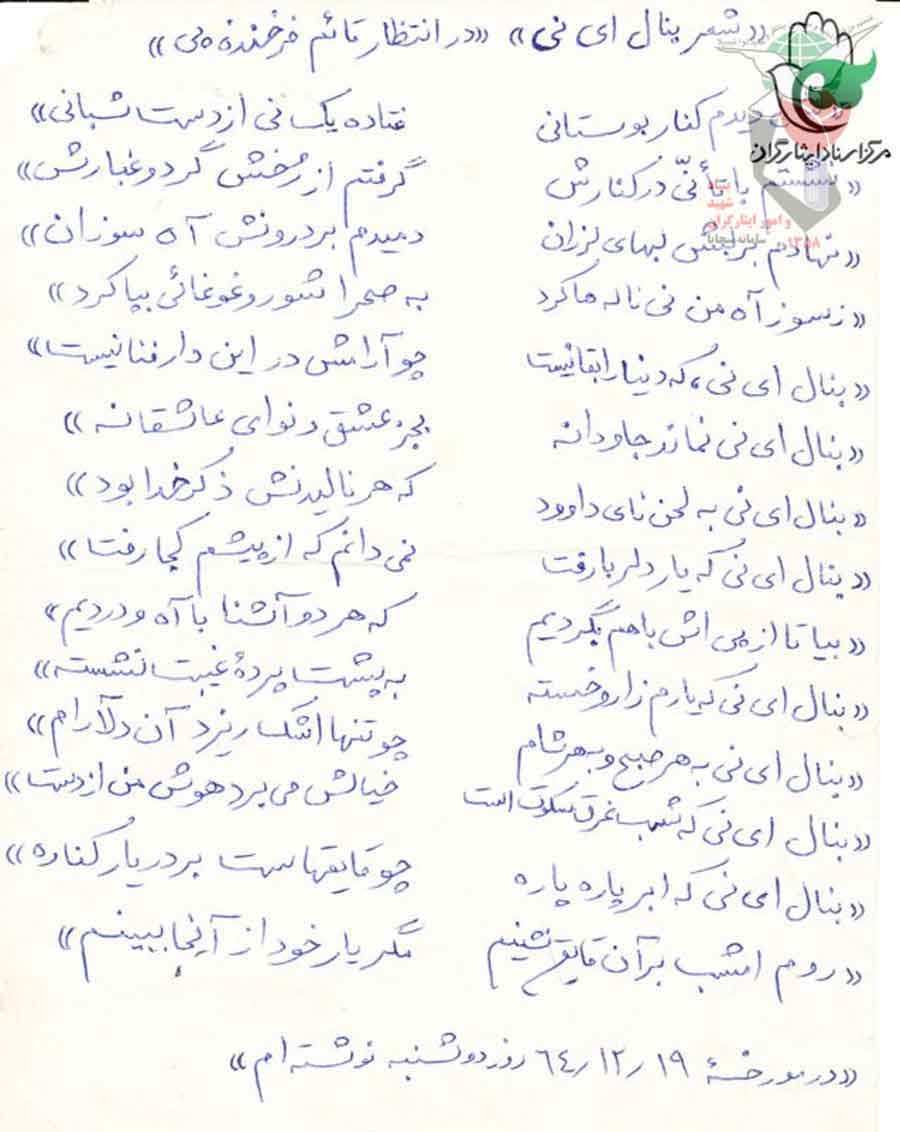 «شعر بنال ای نی» «در انتظار قائم فرخنده پی»
مرکز اسناد ایثارگران
بنیاد شهید و امور ایثارگران
سامانه سجایا ۱۳۵۸
دیدم کنار بوستانی فتاده یک نی از دست شبانی»
«نشستم با تأنّی در کنارش گرفتم از رُخش گرد و غبارش»
«نهادم بر لبش لبهای لرزان دمیدم بر درونش آه سوزان»
«ز سوز آه من نی ناله ها کرد به صحرا شور و غوغائی بپا کرد»
«بنال ای نی، که دنیا را بقا نیست چو آرامش در این دار فنا نیست»
«بنال ای نی نماند جاودانه بجز عشق و نوای عاشقانه»
«بنال ای نی به لحن نای داوود که هر نالیدنش ذکر خدا بود»
«بنال ای نی که یار دلربا رفت نمی دانم که از پیشم کجا رفت»
«بیا تا از پی اش باهم بگردیم که هر دو آشنا با آه و دردیم»
«بنال ای نی که یارم زار و خسته به پشت پردۀ غیبت نشسته»
«بنال ای نی به هر صبح و به هر شام چو تنها اشک ریزد آن دلآرام»
«بنال ای نی که شب غرق سکوت است خیالش می برد هوش من از دست»
«بنال ای نی که ابر پاره پاره چو قایقهاست بر دریا کناره»
«روم امشب بر آن قایق نشینم مگر یار خود از آنجا ببینم»
«در مورخۀ ۶۴٫۱۲٫۱۹ روز دوشنبه نوشته ام»